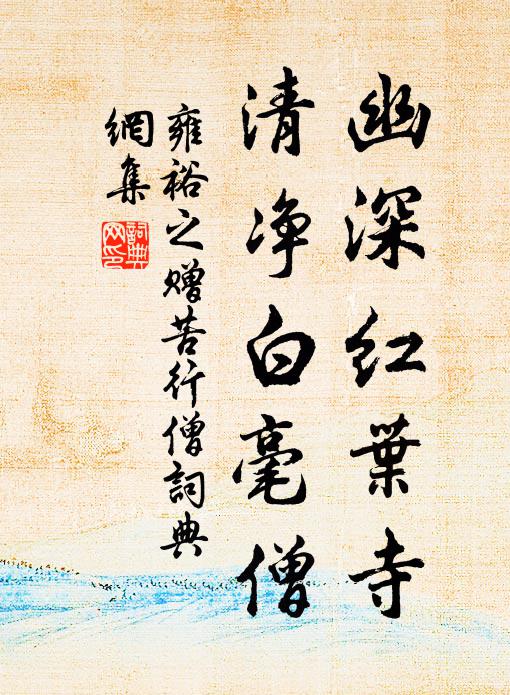 幽深紅葉寺
清净白毫僧
雍裕之赠苦行僧詞典
網集
詞典
网印